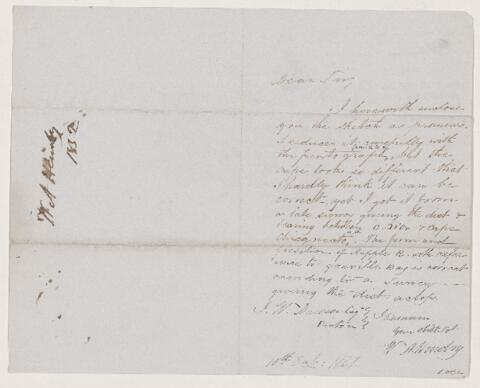 Dear Sir,
I herewith enclose
you the sketch as promised.
I reduced it carefully with
the pentograph, but the
cape looks so different that
I hardly think it can be
correct, yet I got it from
a late survey giving the dist &
bearing between C. D'Or & Cape
Chegnecto. The form and
position of Apple R. with refer-
ence to Granville Bay is correct
according to a survey
giving the dist across.
J. W. Dawson Esq
Pictou
I remain
Your Obdt St
W A Hendry
10th 1852
W A Hendry
1852